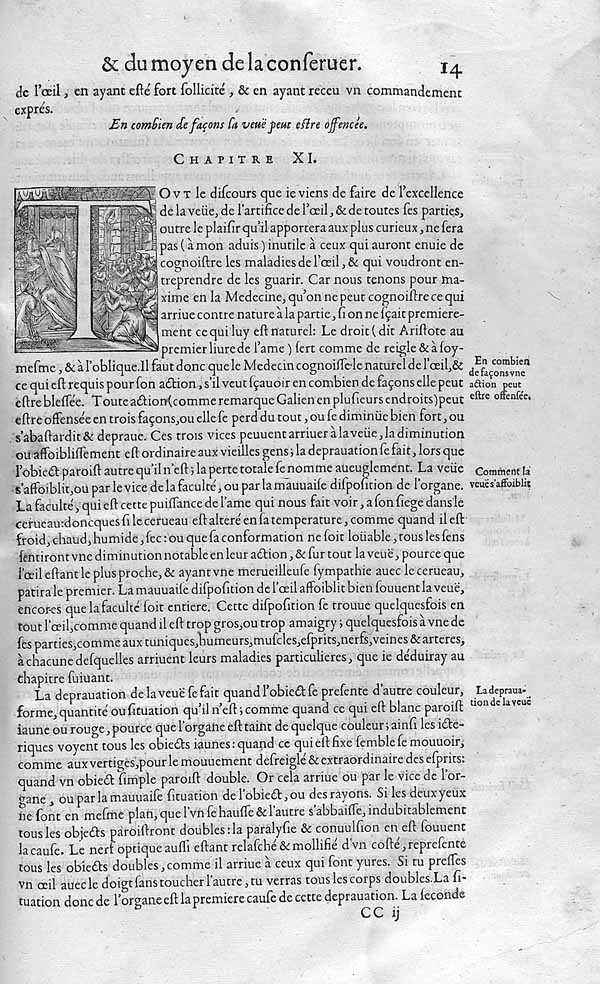 & du moyen de la conſeruer. 14
de l'œil, en ayant eſté fort ſollicité, & en ayant receu vn commandement
exprés.
En combien de façons ſa veuë peut eſtre offencée.
CHAPITRE XI.
TOVT le diſcours que ie viens de faire de l'excellence
de la veüe, de l'artifice de l'œil, & de toutes ſes parties,
outre le plaiſir qu'il apportera aux plus curieux, ne ſera
pas (à mon aduis) inutile à ceux qui auront enuie de
cognoiſtre les maladies de l'œil, & qui voudront en-
treprendre de les guarir. Car nous tenons pour ma-
xime en la Medecine, qu'on ne peut cognoiſtre ce qui
arriue contre nature à la partie, ſi on ne ſçait premiere-
ment ce qui luy eſt naturel: Le droit (dit Ariſtote au
premier liure de l'ame) ſert comme de reigle & à ſoy-
meſme, & à l'oblique. Il faut donc que le Medecin cognoiſſe le naturel de l'œil, &
ce qui eſt requis pour ſon action, s'il veut ſçauoir en combien de façons elle peut
eſtre bleſſée. Toute action (comme remarque Galien en pluſieurs endroits) peut
eſtre offensée en trois façons, ou elle ſe perd du tout, ou ſe diminüe bien fort, ou
s'abaſtardit & depraue. Ces trois vices peuuent arriuer à la veüe, la diminution
ou affoibliſſement eſt ordinaire aux vieilles gens; la deprauation ſe fait, lors que
l'obiect paroiſt autre qu'il n'eſt; la perte totale ſe nomme aueuglement. La veüe
s'affoiblit, ou par le vice de la faculté, ou par la mauuaiſe diſpoſition de l'organe.
La faculté, qui eſt cette puiſſance de l'ame qui nous fait voir, a ſon ſiege dans le
cerueau: doncques ſi le cerueau eſt alteré en ſa temperature, comme quand il eſt
froid, chaud, humide, ſec: ou que ſa conformation ne ſoit loüable, tous les ſens
ſentiront vne diminution notable en leur action, & ſur tout la veuë, pource que
l'œil eſtant le plus proche, & ayant vne merueilleuſe ſympathie auec le cerueau,
patira le premier. La mauuaiſe diſpoſition de l'œil affoiblit bien ſouuent la veuë,
encores que la faculté ſoit entiere. Cette diſpoſition ſe trouue quelquesfois en
tout l'œil, comme quand il eſt trop gros, ou trop amaigry; quelquesfois à vne de
ſes parties, comme aux tuniques, humeurs, muſcles, eſprits, nerfs, veines & arteres,
à chacune deſquelles arriuent leurs maladies particulieres, que ie déduiray au
chapitre ſuiuant.
La deprauation de la veuë ſe fait quand l'obiect ſe preſente d'autre couleur,
forme, quantité ou ſituation qu'il n'eſt; comme quand ce qui eſt blanc paroiſt
iaune ou rouge, pource que l'organe eſt taint de quelque couleur; ainſi les icte-
riques voyent tous les obiects iaunes: quand ce qui eſt fixe ſemble ſe mouuoir,
comme aux vertiges, pour le mouuement deſreiglé & extraordinaire des eſprits:
quand vn obiect ſimple paroiſt double. Or cela arriue ou par le vice de l'or-
gane, ou par la mauuaiſe ſituation de l'obiect, ou des rayons. Si les deux yeux
ne ſont en meſme plan, que l'vn ſe hauſſe & l'autre s'abbaiſſe, indubitablement
tous les objects paroiſtront doubles: la paralyſie & conuulſion en eſt ſouuent
la cauſe. Le nerf optique auſſi eſtant relaſché & mollifié d'vn coſté, repreſente
tous les obiects doubles, comme il arriue à ceux qui ſont yures. Si tu preſſes
vn œil auec le doigt ſans toucher l'autre, tu verras tous les corps doubles. La ſi-
tuation donc de l'organe eſt la premiere cauſe de cette deprauation. La ſeconde
CC ij
En combien
de façons vne
action peut
eſtre offenſée.
Comment la
veuë s'affoiblit
La depraua-
tion de la veuë